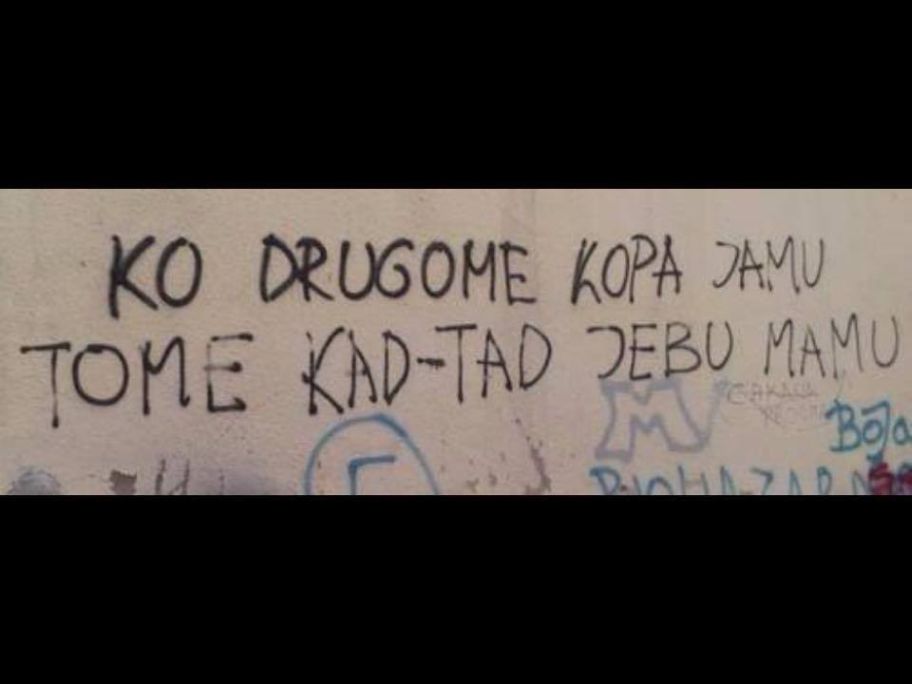 KO DRUGOME KOPA JAMU
TOME KAD-TAD JEBU MAMU
M
Boja